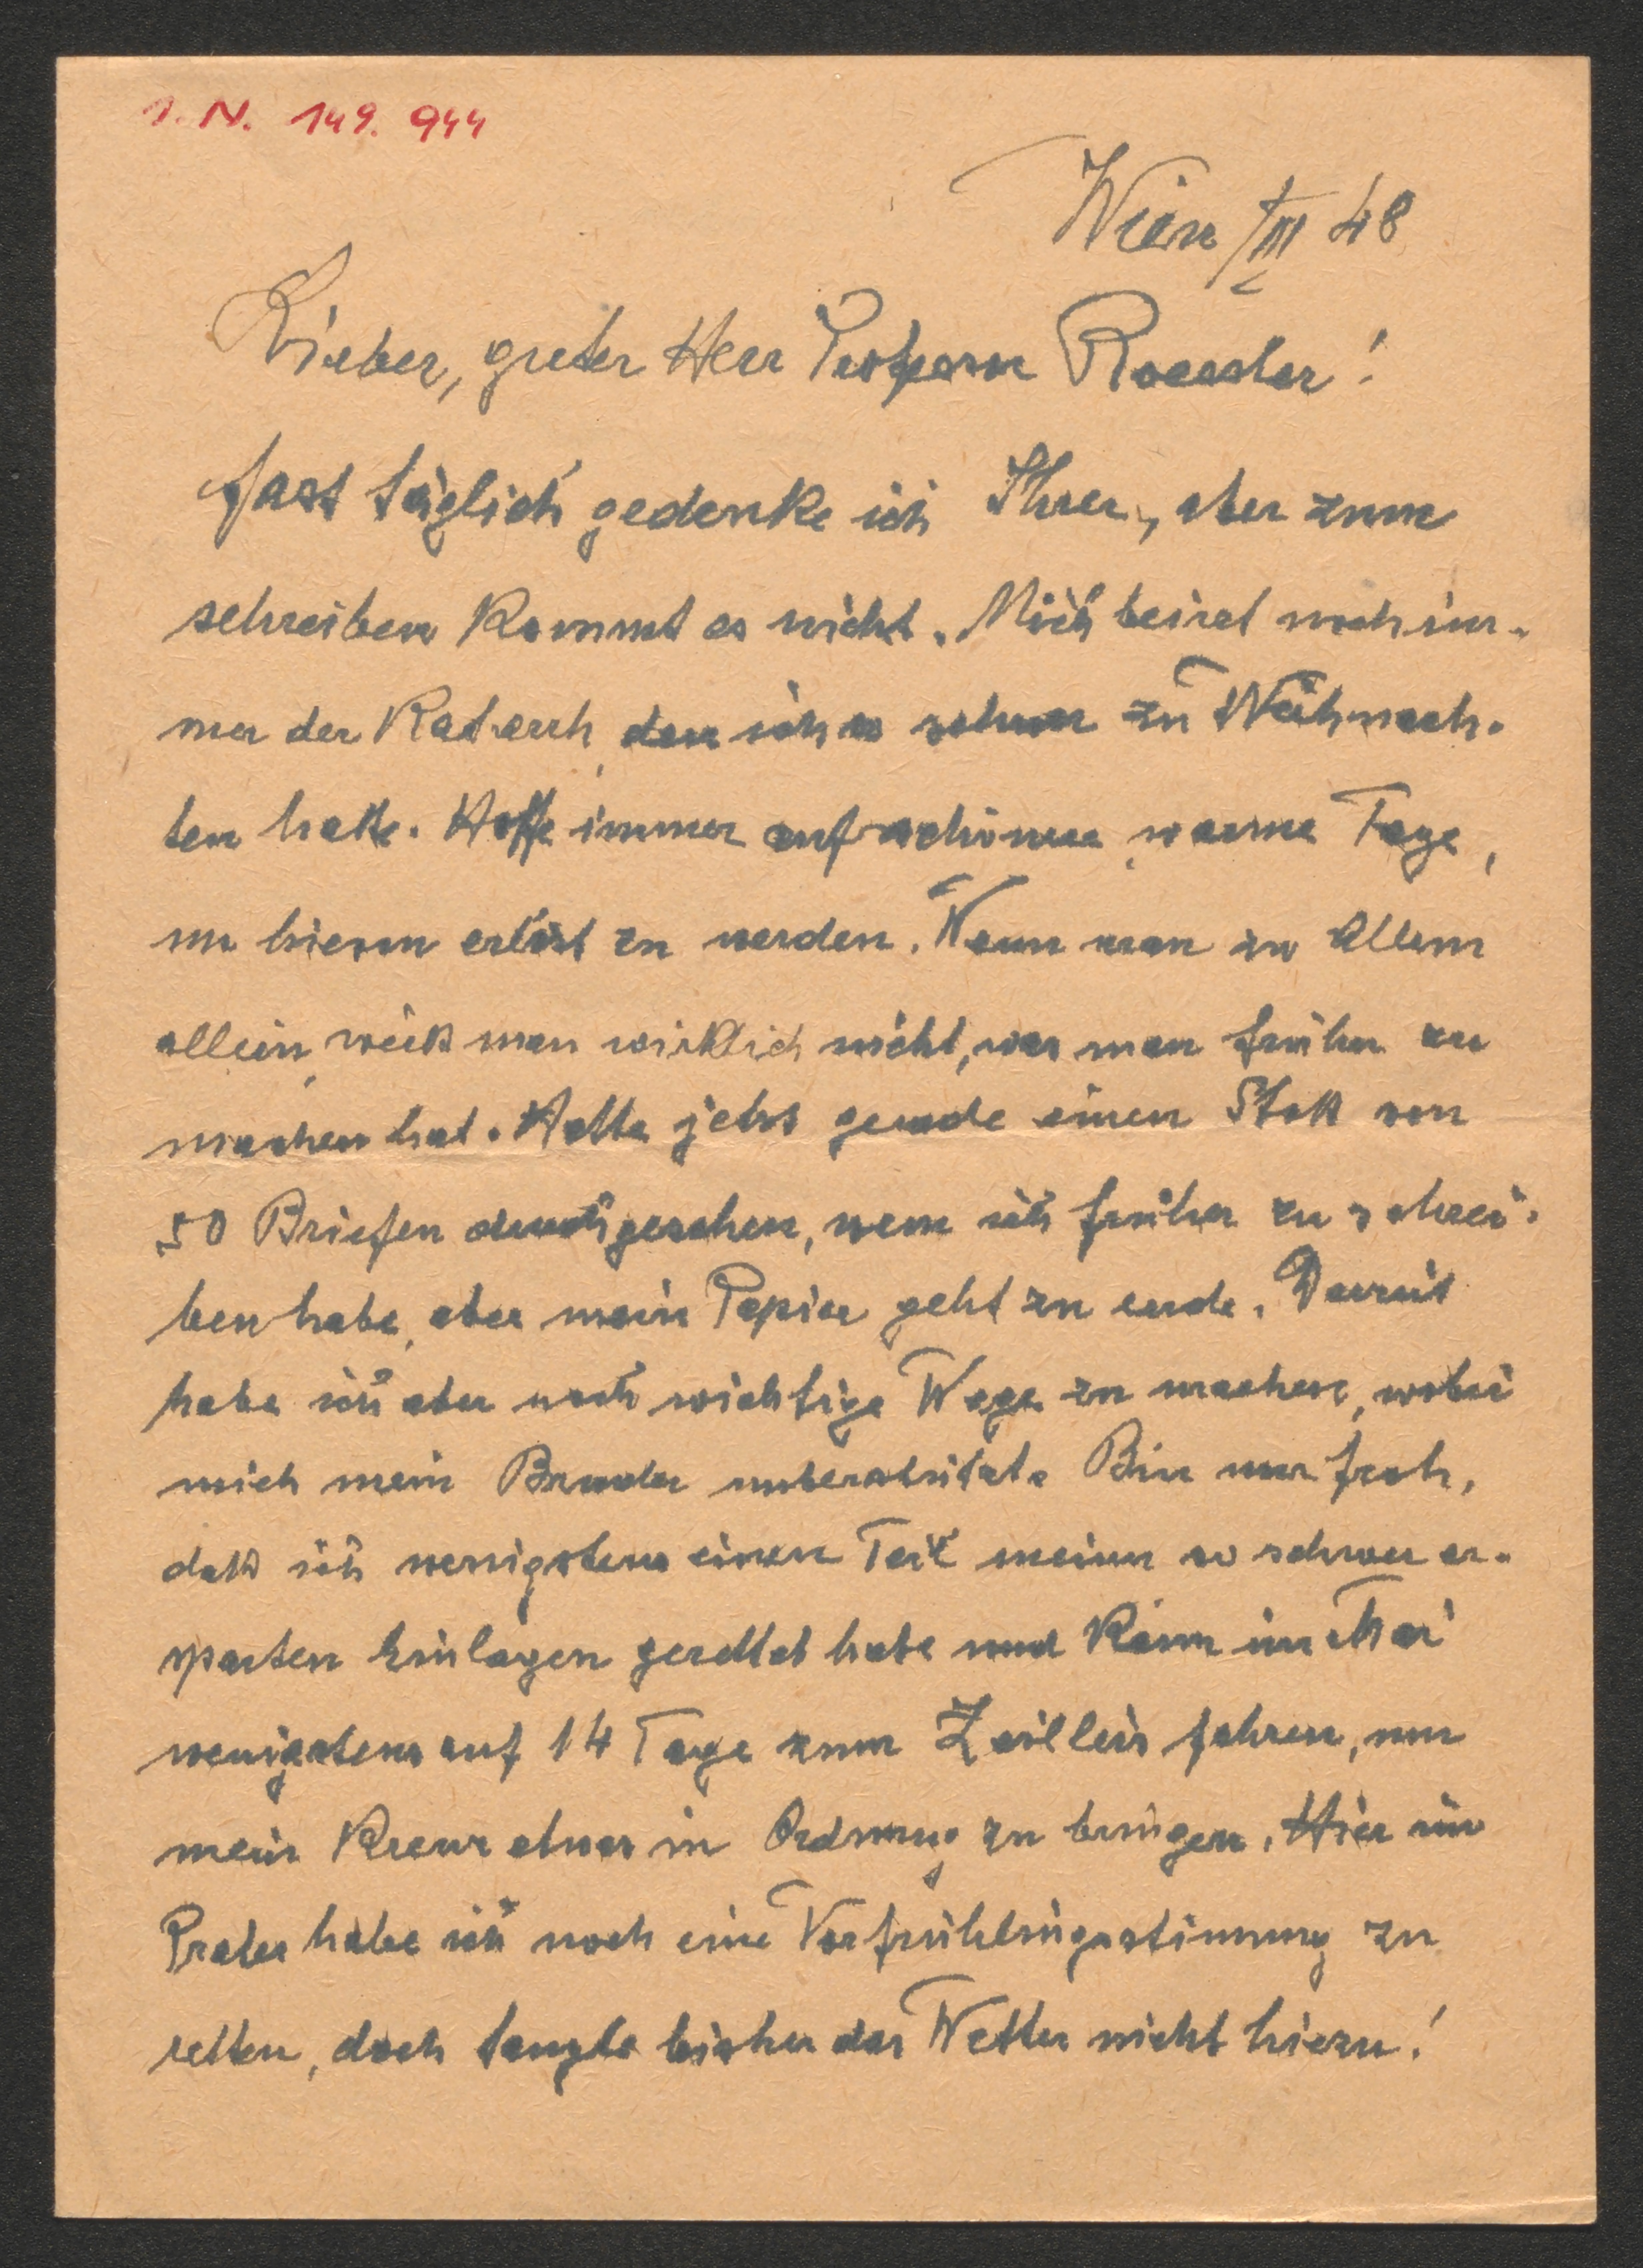 I. N. 149.944
Wien /III 48
Lieber, guter Herr Professor Roessler!
fast täglich gedenke ich Ihrer, aber zum
schreiben kommt es nicht. Mich beirrt noch im-
mer der Katarrh, den ich schon zu Weihnach-
ten hatte. Hoffe immer auf schöne, warme Tage,
um hievon erlöst zu werden. Wenn man in Allem
allein, weiß man wirklich nicht, was man früher zu
machen hat. Hatte jetzt gerade einen Stoß von
50 Briefen durchgesehen, wem ich früher zu schrei-
ben habe, aber mein Papier geht zu ende. Derzeit
habe ich aber noch wichtige Wege zu machen, wobei
mich mein Bruder unterstützt. Bin nur froh,
daß ich wenigstens einen Teil meiner so schwer er-
sparten Einlagen gerettet habe und kann im Mai
wenigstens auf 14 Tage zum Zeilleis fahren, um
mein Kreuz etwas in Ordnung zu bringen. Hier im
Prater habe ich noch eine Vorfrühlingsstimmung zu
retten, doch taugte bisher das Wetter nicht hiezu!